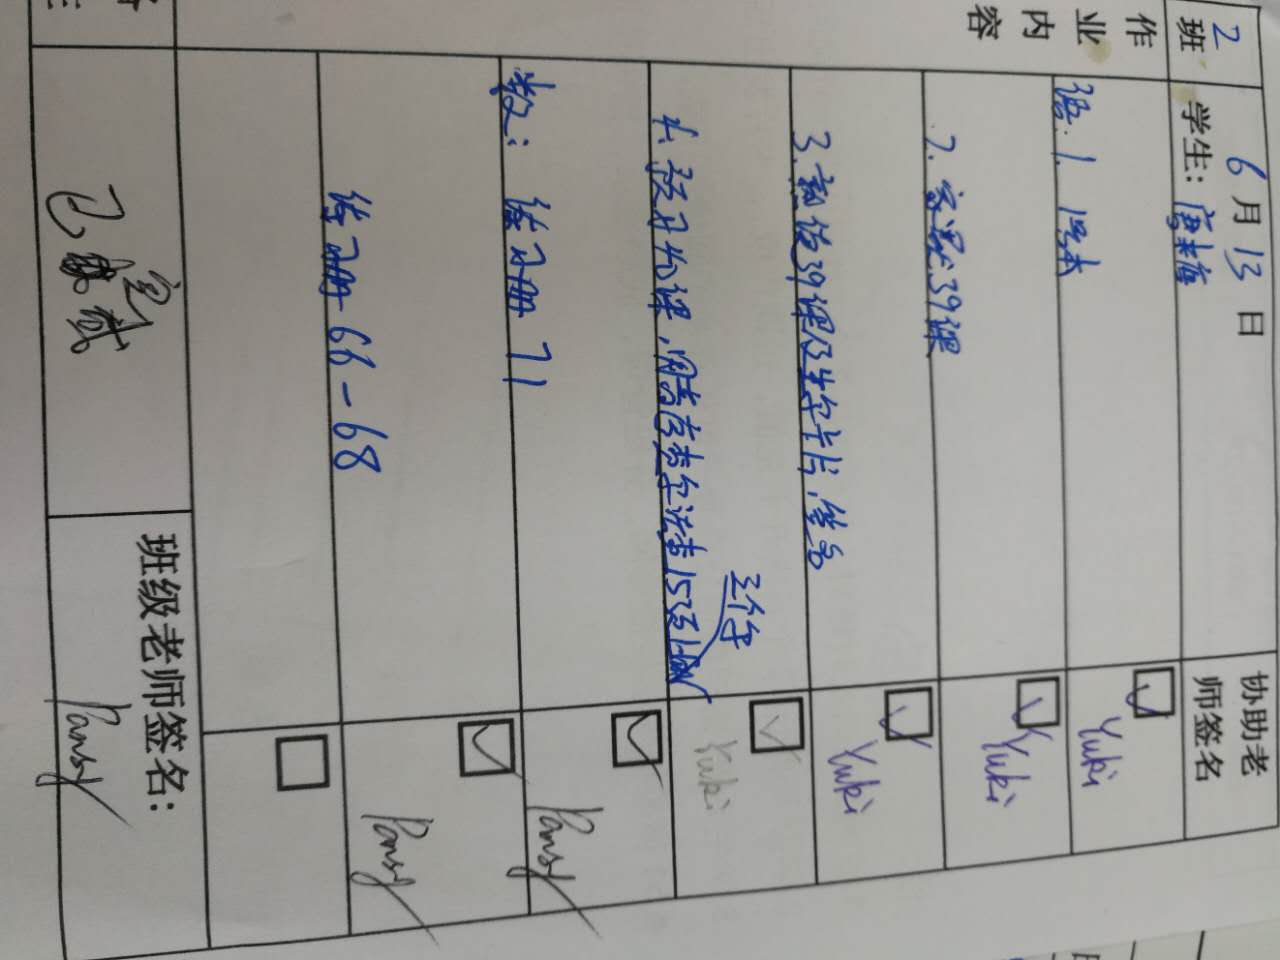 2班 6月13日
学生: 协助老师签名
作业内容
语:1. 课本
Yuki
2. 家默39课
Yuki
3. 读39课及生字卡片,签名
Yuki
4. 预习 课,用音序查字法查15页
三个字
Yuki
数: 练习册 71
Pansy
练习册 66-68
Pansy
已完成
班级老师签名:
Pansy